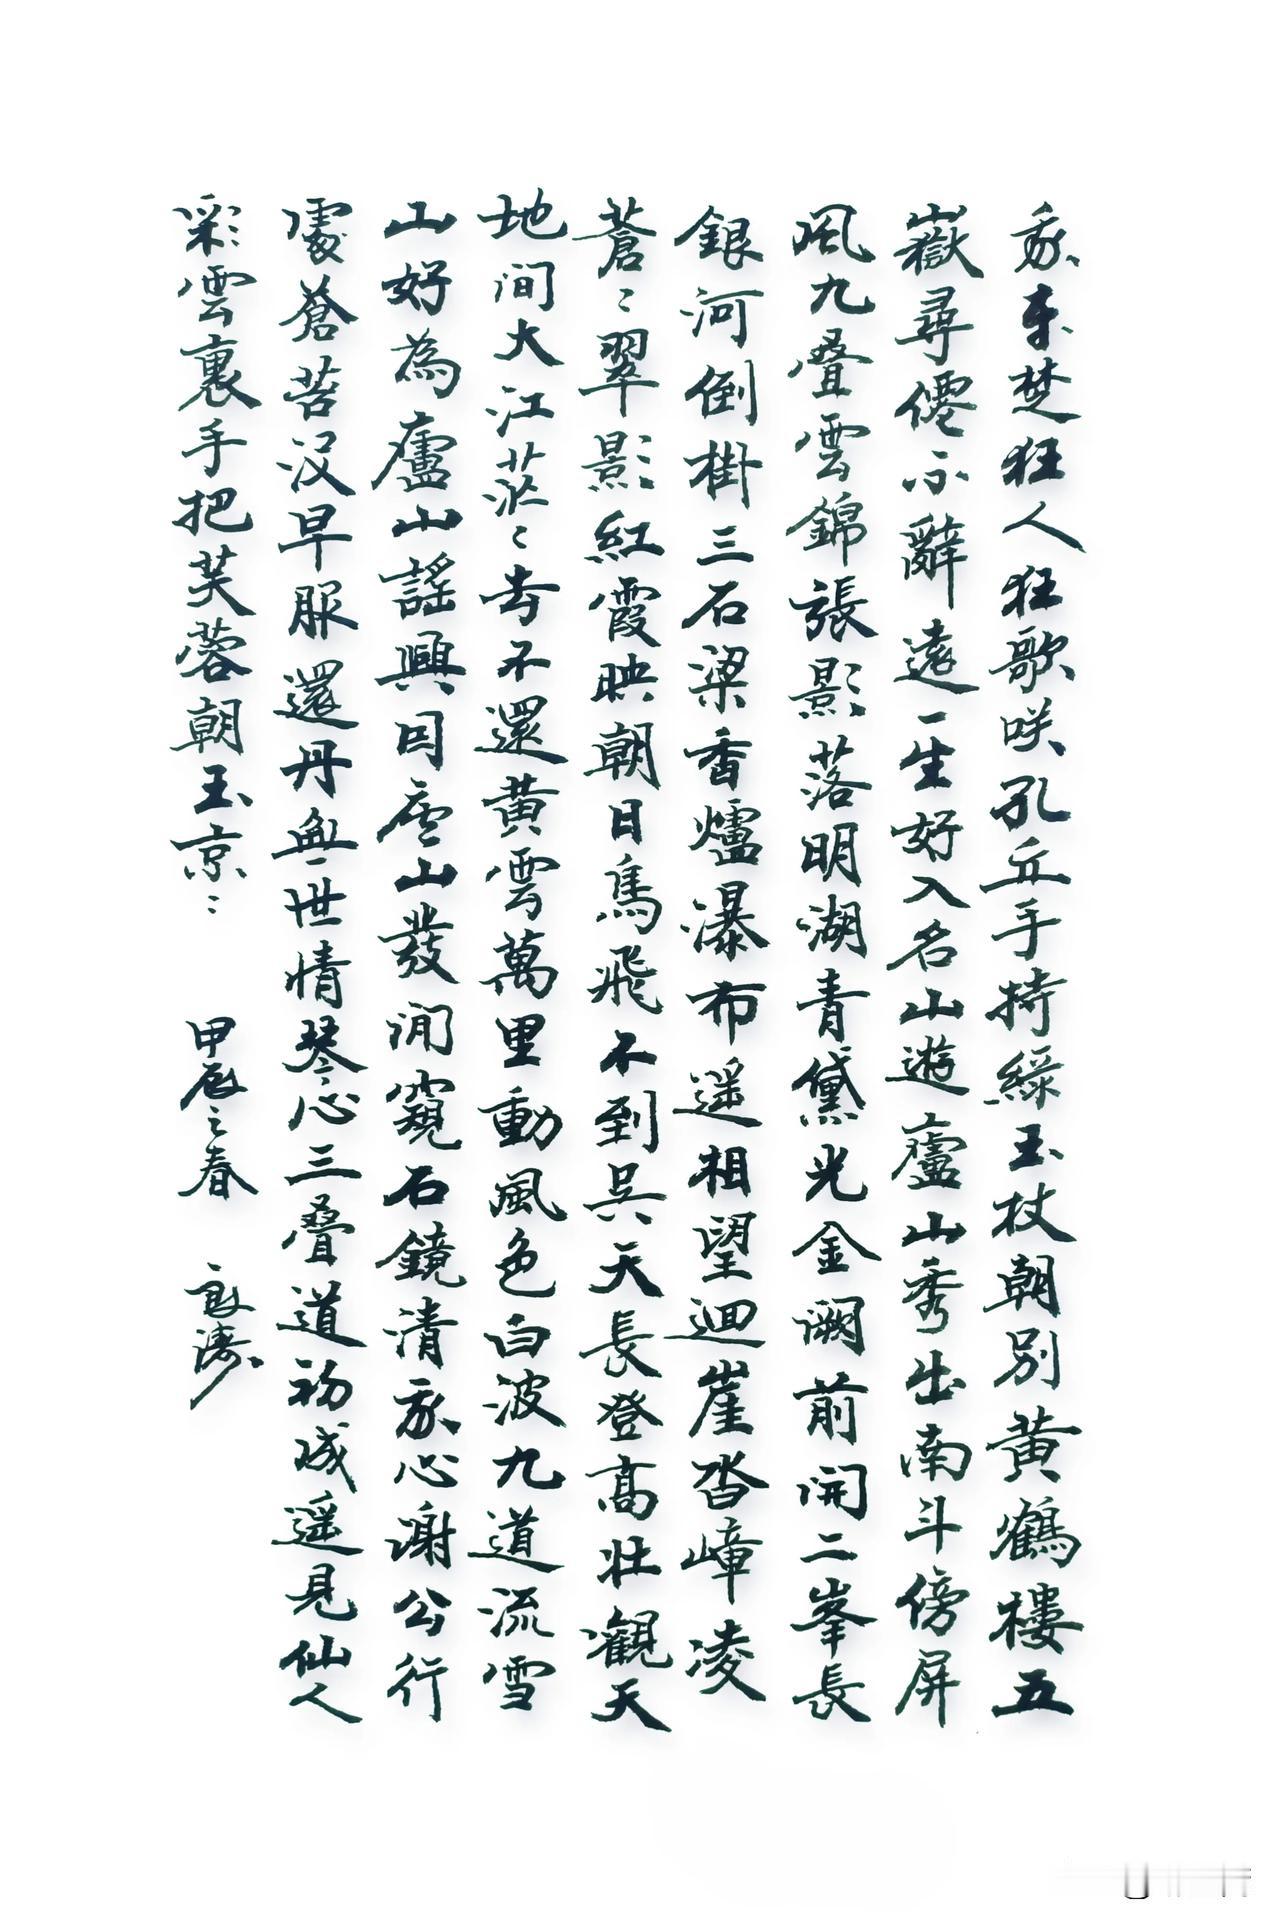 我本楚狂人狂歌咲孔丘手持綠玉杖朝別黃鶴樓五
嶽尋僊不辭遠一生好入名山遊廬山秀出南斗傍屏
風九叠雲錦張影落明湖青黛光金闕前開二峯長
銀河倒掛三石梁香爐瀑布遥相望迴崖沓嶂凌
蒼〻翠影紅霞映朝日鳥飛不到吳天長登高壯觀天
地間大江茫〻去不還黃雲萬里動風色白波九道流雪
山好為廬山謠興因廬山發閒窺石鏡清我心謝公行
處蒼苔没早服還丹無世情琴心三叠道初成遥見仙人
彩雲裏手把芙蓉朝玉京：甲辰之春